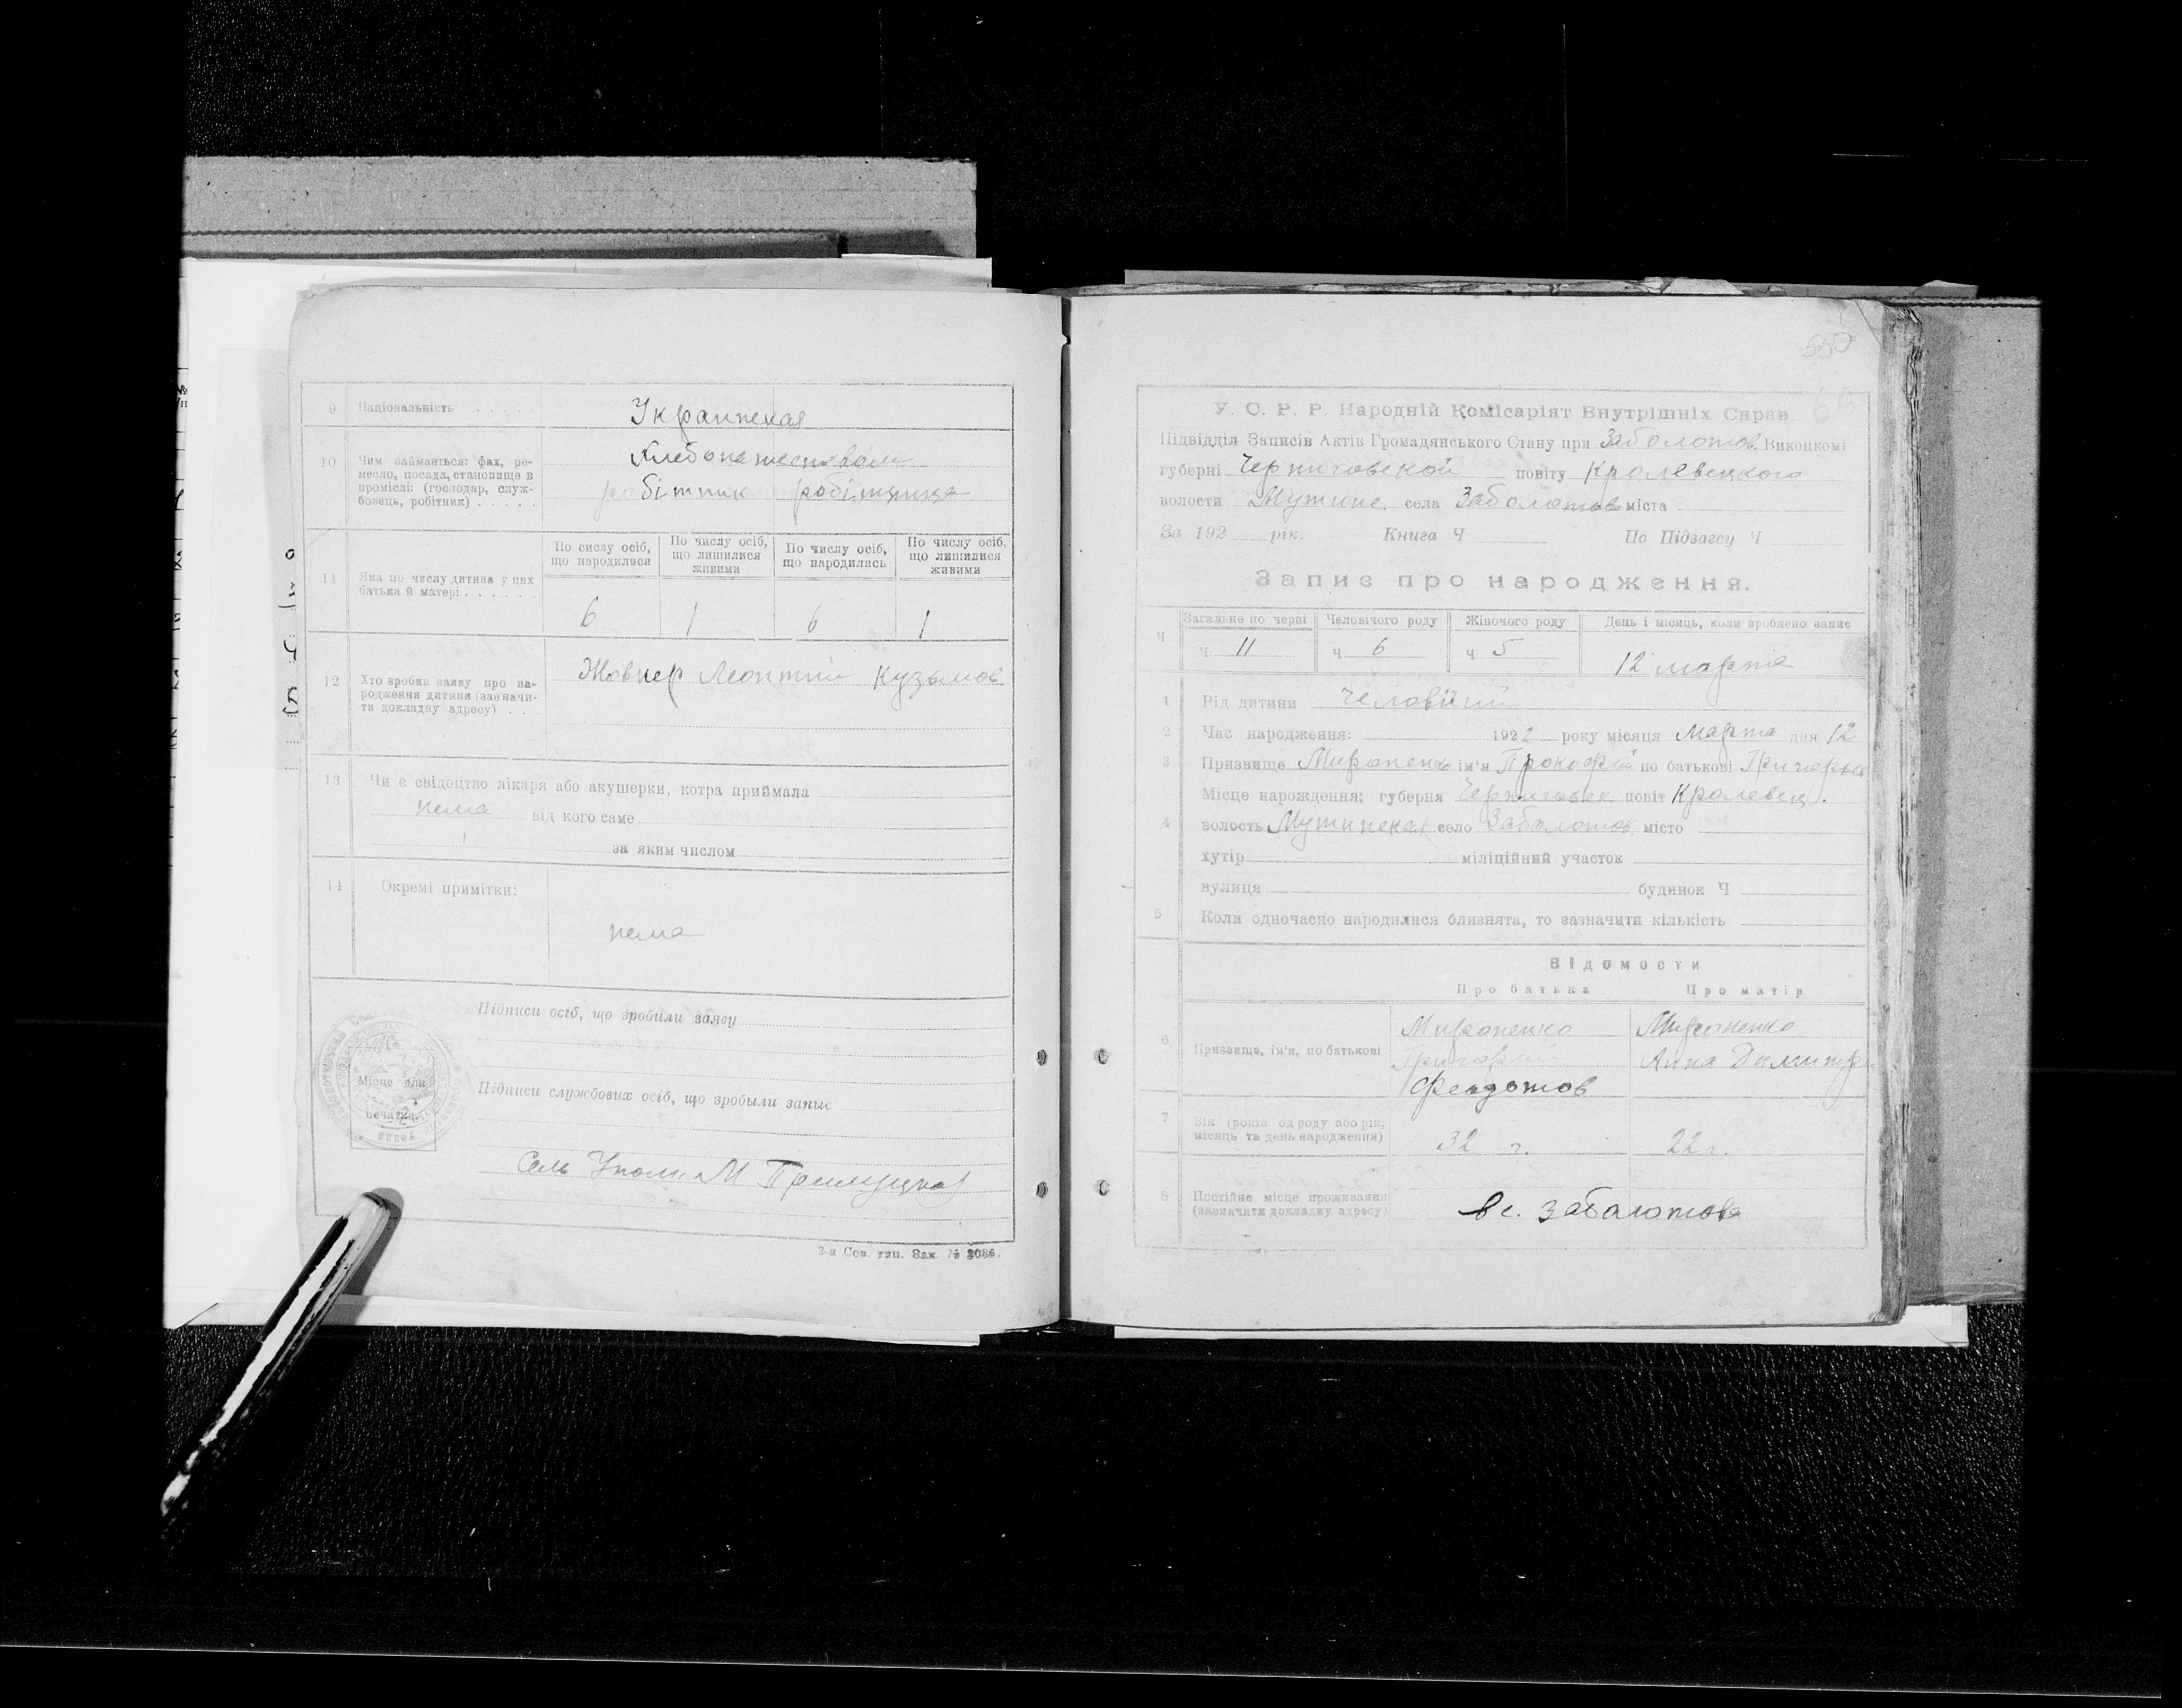 9 Національність . . . . . Украинская
10 Чим займається: фах, ре-
месло, посада, становище в
промислі: (господар, служ-
бовець, робітник) . . . . .
Хлебопашеством
робітник робітниця
11 Яка по числу дитина у цих
батька й матері . . . . . .
По сислу осіб,
що народилися
По числу осіб,
що лишилися
живими
По числу осіб,
що народились
По числу осіб,
що лишилися
живими
6 1 6 1
12 Хто зробив заяву про на-
родження дитини (зазначи-
ти докладну адресу) . . .
Жовнер Леонтий Кузьмов
13 Чи є свідоцтво лікаря або акушерки, котра приймала
нема від кого саме
за яким числом
14 Окремі примітки:
нема
Підписи осіб, що зробили заяву
Підписи службових осіб, що зробыли запыс
Місце для
печатки.
Сель Уполн М
2-я Сов. тип. Зак. № 3086.
У. С. Р. Р. Народній Комісаріят Внутрішніх Справ.
Підвідділ Записів Актів Громадянського Стану при Заболотов. Виконкомі
губерні Черниговской повіту Кролевецкого
волости Мутинс. села Заболотов міста
За 192 рік. Книга Ч По Підзагсу Ч
Запис про народження.
Ч
Загальне по черзі Человічого роду Жіночого роду День і місяць, коли зроблено запис
Ч 11 Ч 6 Ч 5 12 марта
1 Рід дитини человічий
2 Час народження: 1922 року місяця марта дня 12
3 Призвище Мироненко ім'я Прокофий по батькові Григорьев
Місце нарождення; губерня Черниговск повіт Кролевец.
4 волость Мутинская село Заболотов. місто
хутір міліційний участок
вулиця будинок Ч
5 Коли одночасно народилися близнята, то зазначити кількість
Відомости
Про батька Про матір
6 Призвище, ім'я, по батькові
Мироненко
Григорий
Феодотов
Мироненко
Анна Димитри
7 Вік (років од роду або рік,
місяць та день народження)
32 г. 22 г.
8 Постійне місце проживання
(зазначити докладну адресу)
в с. Заболотова